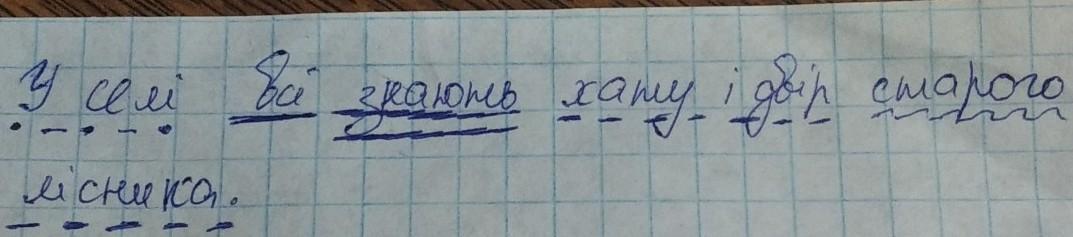 У селі всі знають хату і двір старого
лісника.